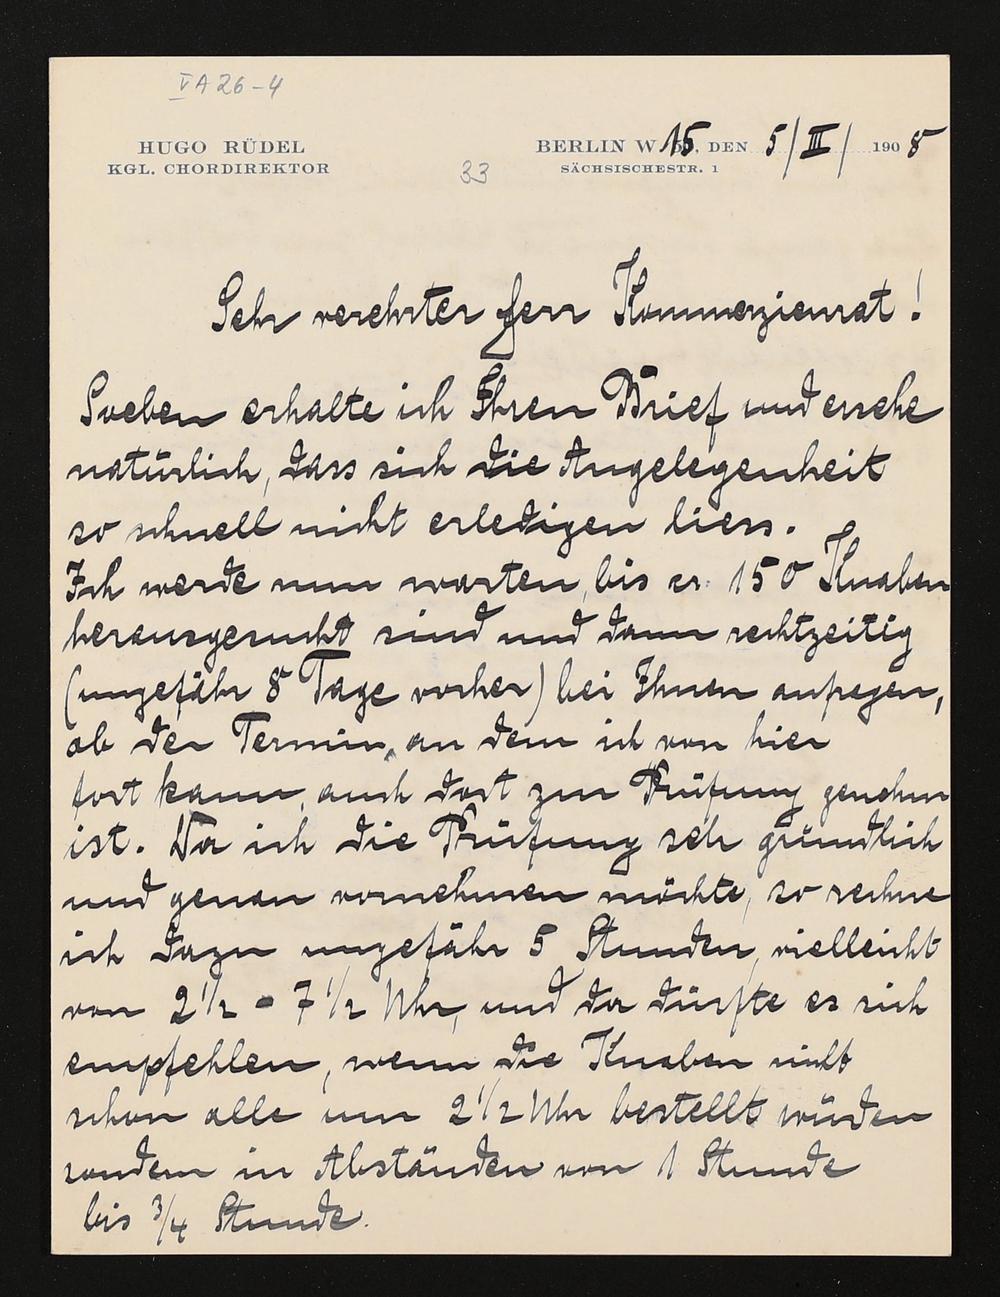 V A 26-4
HUGO RÜDEL
KGL. CHORDIREKTOR
33
BERLIN W. 15, DEN 5/III/ 1908
SÄCHSISCHESTR. 1
Sehr verehrter Herr Kommerzienrat!
Soeben erhalte ich Ihren Brief und ersehe
natürlich, dass sich die Angelegenheit
so schnell nicht erledigen liess.
Ich werde nun warten, bis cr. 150 Knaben
herausgesucht sind und dann rechtzeitig
(ungefähr 8 Tage vorher) bei Ihnen anfragen,
ob der Termin, an dem ich von hier
fort kann, auch dort zur Prüfung genehm
ist. Da ich die Prüfung sehr gründlich
und genau vornehmen möchte, so rechne
ich dazu ungefähr 5 Stunden, vielleicht
von 2 1/2 - 7 1/2 Uhr, und da dürfte es sich
empfehlen, wenn die Knaben nicht
schon alle um 2 1/2 Uhr bestellt würden
sondern in Abständen von 1 Stunde
bis 3/4 Stunde.